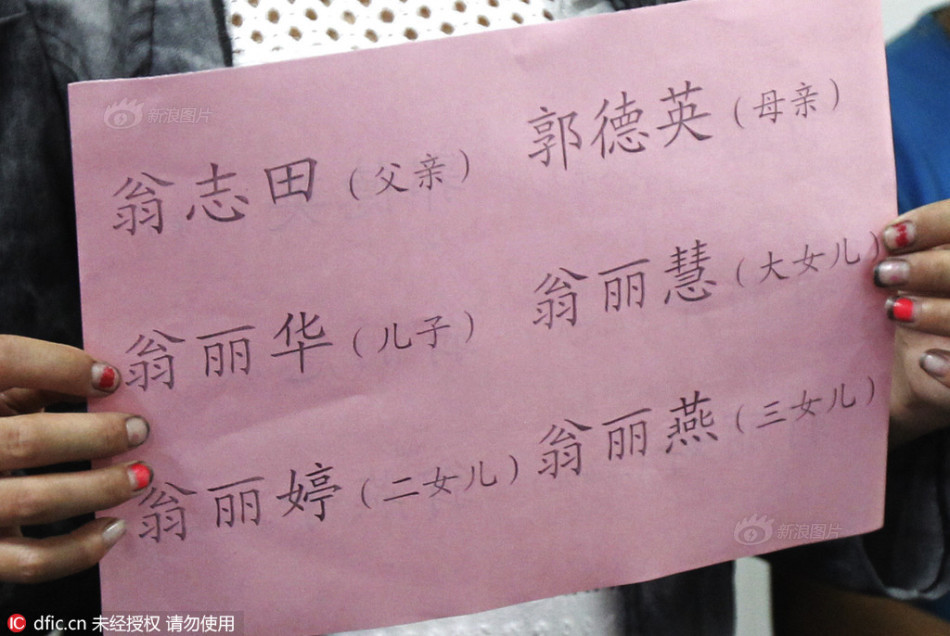 新浪图片
翁志田（父亲） 郭德英（母亲）
翁丽华（儿子） 翁丽慧（大女儿）
翁丽婷（二女儿） 翁丽燕（三女儿）
新浪图片
IC dfic.cn 未经授权 请勿使用